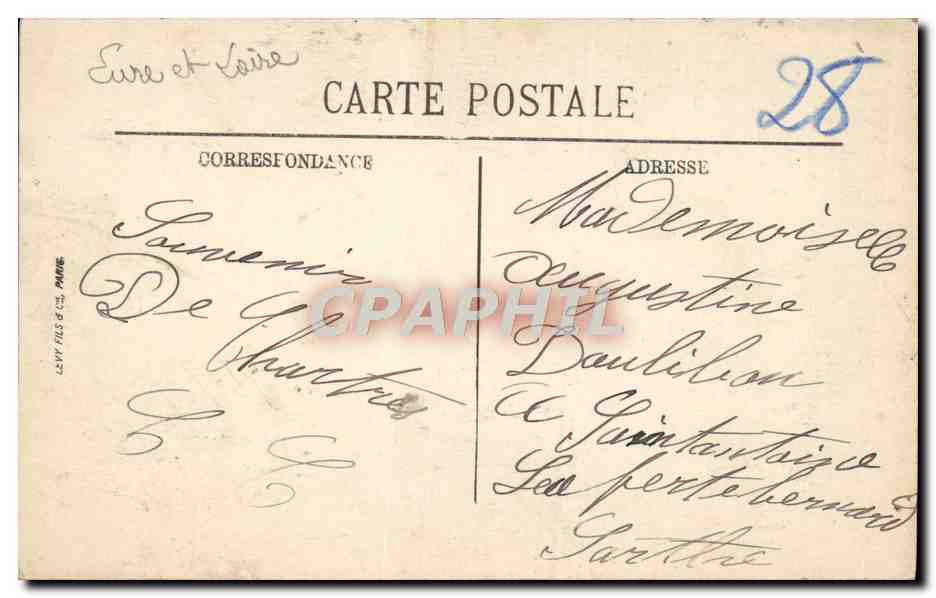 Eure et Loire
28
CARTE POSTALE
CORRESPONDANCE
Souvenir
De
Chartres
ADRESSE
Mademoiselle
augustine
Boulibon
a Saintantoine
La fertebernard
Sarthe
LEVY FILS & Cie, PARIS.
CPAPHIL